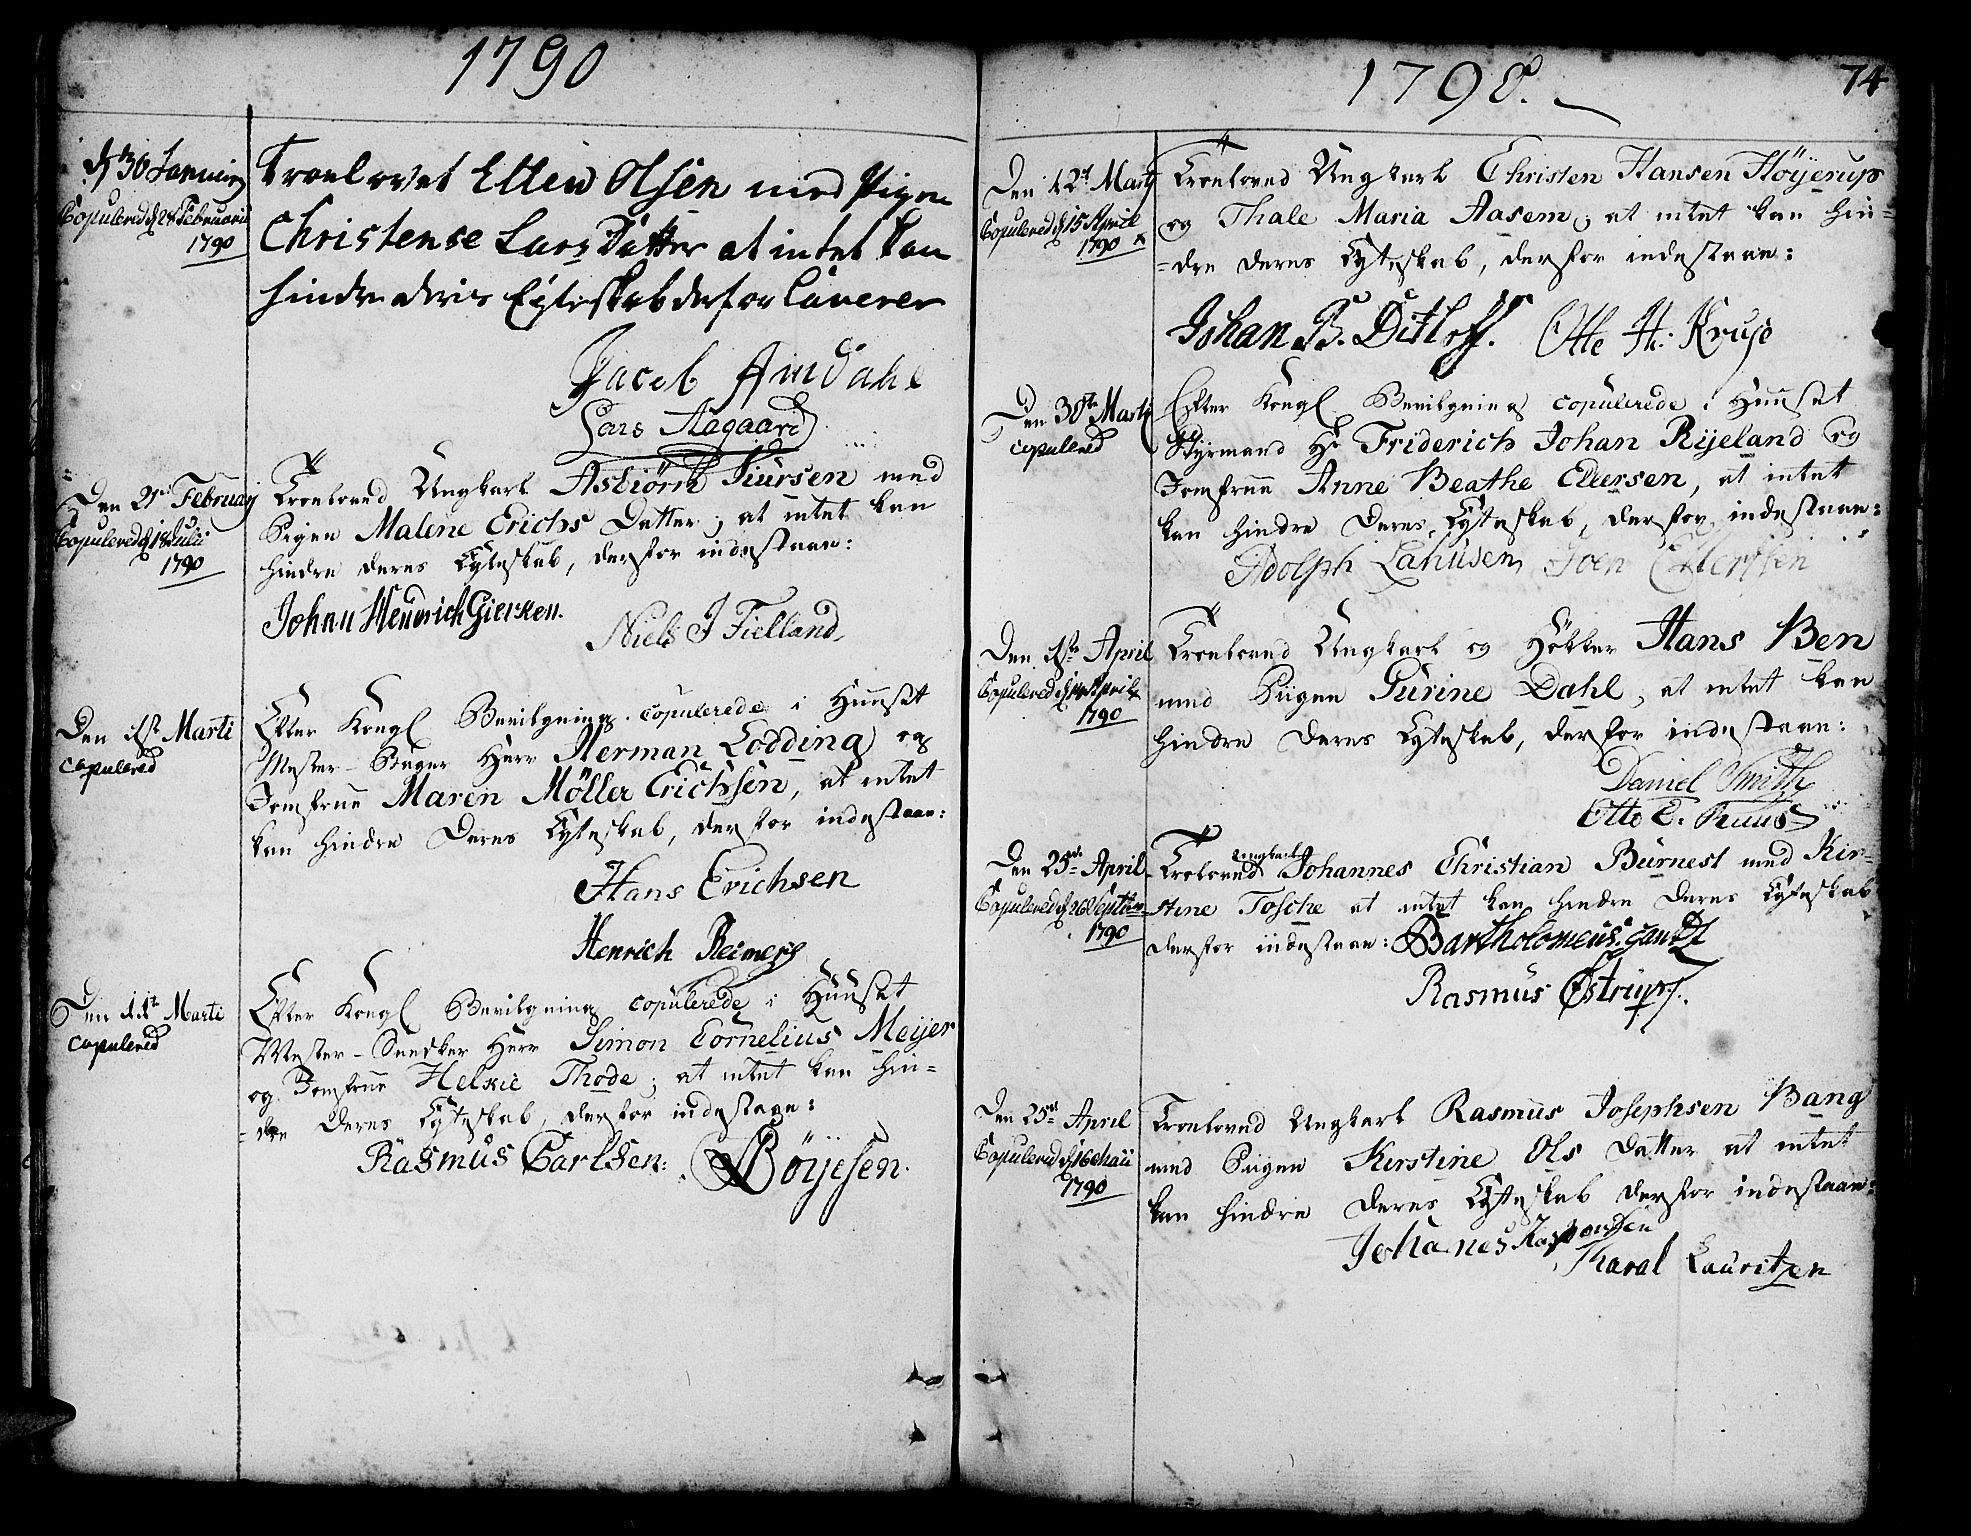 1790
d 30 Januarij
Copulered d 28 Februarii
1790
Troelovet Ellen Olsen med Pigen
Christense Lars Datter at intet kan
hindre deris Egteskab derfor Caverer
Jacob Amdahl
Lars Aagaard
Den 21de Februarij
Copulered d 18 Julii
1790
Troeloved Ungkarl Asbiörn Siursen med
Pigen Malene Erichs Datter; at intet kan
hindre deres Egteskab, derfor indestaae:
Johan Hendrich Giersen.
Niels J Fielland
Den 1ste Marti
copulered
Efter Kongl Bevilgning copulerede i Huuset
Mester-Bager Herr Herman Lodding og
Jomfrue Maren Möller Erichsen, at intet
kan hindre Deres Egteskab, derfor indestaae:
Hans Erichsen
Henrich Reimers
Den 11te Marti
copulered
Efter Kongl Bevilgning copulerede i Huuset
Mester-Snedker Herr Simon Cornelius Meijer
og Jomfrue Helkie Thode; at intet kan hin-
-dre Deres Egteskab, derfor indestaae:
Rasmus Carlsen:
Börjesen.
1790.
74
Den 12te Martij
Copulered d 15 April
1790
Troeloved Ungkarl Christen Hansen Höijerup
og Thale Maria Aasem; at intet kan hin-
-dre deres Egteskab, derfor indestaae:
Johan B. Ditloff. Otte H. Kruse
Den 30te Martij
copulered
Efter Kongl Bevilgning copulerede i Huuset
Styrmand Hr Friderich Johan Rijeland og
Jomfrue Anne Beathe Ellersen, at intet
kan hindre Deres Egteskab, derfor indestaae:
Adolph Lahusen Joen Ellerssen
Den 1ste April
Copulered d April
1790
Troeloved Ungkarl og Hökker Hans Ben
med Piigen Gurine Dahl, at intet kan
hindre Deres Egteskab, derfor indestaae:
Daniel Smith
Otto C. Ruus
Den 25de April
Copulered d 26 Septbr
1790
Troeloved Ungkarl Johannes Christian Burnest med Kir-
-stine Tosche at intet kan hindre Deres Egteskab
derfor indestaae: Bartholomeus Gandt
Rasmus Østrup.
Den 25de April
Copulered d 16 Maii
1790
Troeloved Ungkarl Rasmus Josephsen Bang
med Piigen Kirstine Ols Datter at intet
kan hindre Deres Egteskab derfor indestaae:
Johanes Rasmusen
Tharal Lauritzen